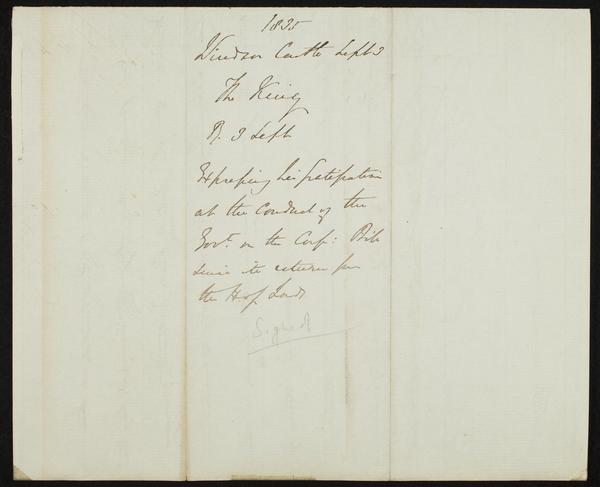 1835
Windsor Castle Sept 3
The King
R. 3 Sept
Expressing his gratification
at the Conduct of the
Govt. on the Corp: Bill
since its return from
the H. of Lords
Signed